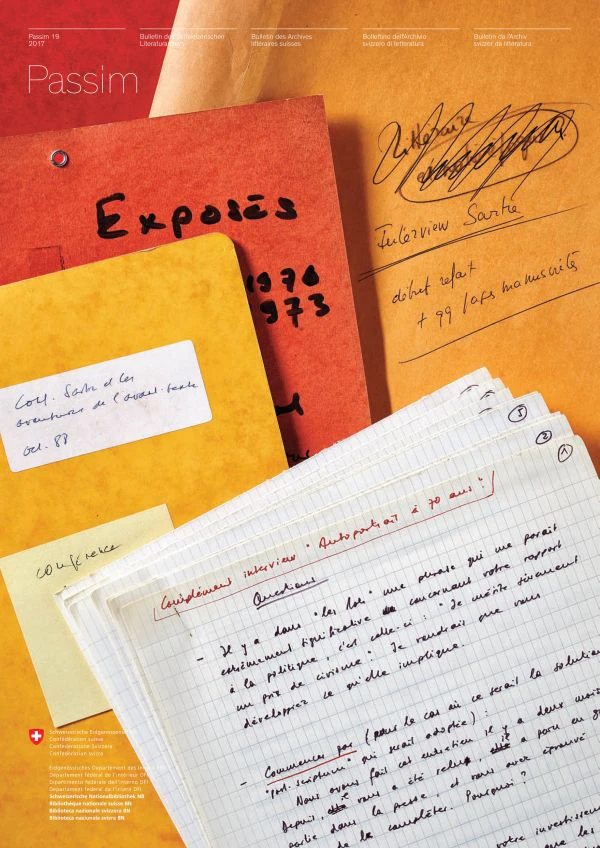 Passim 19
2017
Bulletin des Schweizerischen
Literaturarchivs
Bulletin des Archives
littéraires suisses
Bollettino dell'Archivio
svizzero di letteratura
Bulletin da l'Archiv
svizzer da litteratura
Passim
Littéraire
Interview Sartre
début refait
+ 99 pages manuscrits
Exposés
1970
1973
Coll. Sartre et les
aventures de l'avant-texte
oct. 88
conférence
5
2
1
Complément interview "Autoportrait à 70 ans":
Questions
- Il y a dans "les Mots" une phrase qui me paraît
extrêmement significative concernant votre rapport
à la politique, c'est celle-ci : "Je mérite sûrement
un prix de civisme". Je voudrais que vous
développiez ce qu'elle implique.
Commencer par (dans le cas où ce serait la solution
"post-scriptum" qui serait adoptée) :
Nous avons fait cet entretien il y a deux mois
Depuis, vous a été relu, il a paru en gr
partie dans la presse, et vous avez éprouvé
de le compléter. Pourquoi ?
votre investissem
Schweizerische Eidgenossenschaft
Confédération suisse
Confederazione Svizzera
Confederaziun svizra
Eidgenössisches Departement des Innern EDI
Département fédéral de l'intérieur DFI
Dipartimento federale dell'interno DFI
Departament federal da l'intern DFI
Schweizerische Nationalbibliothek NB
Bibliothèque nationale suisse BN
Biblioteca nazionale svizzera BN
Biblioteca naziunala svizra BN